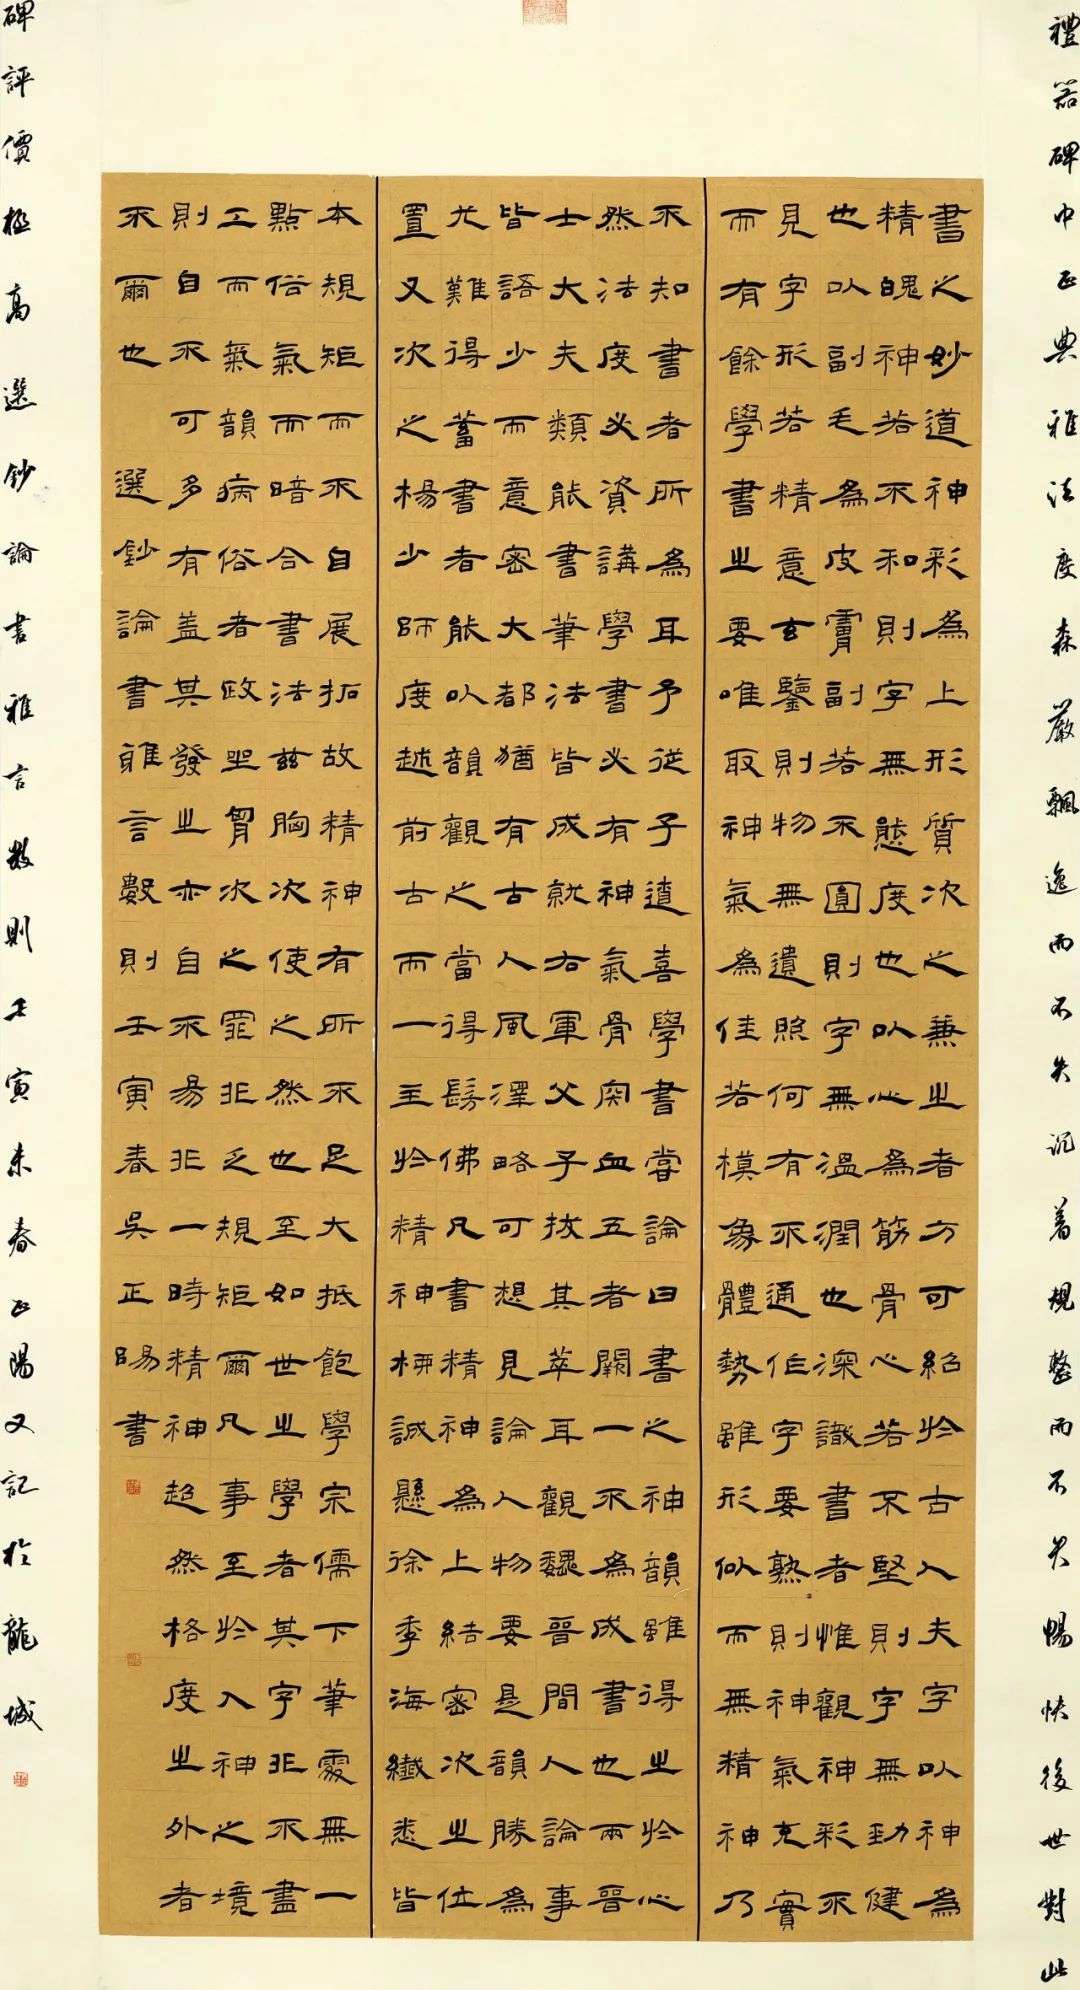 禮器碑中正典雅法度森嚴飄逸而不失沉着規整而不失暢快後世對此
書之妙道神彩為上形質次之兼之者方可紹於古人夫字以神為
精魄神若不和則字無態度也以心為筋骨心若不堅則字無勁健
也以副毛為皮膚副若不圓則字無溫潤也深識書者惟觀神彩不
見字形若精意玄鑒則物無遺照何有不通伯字要熟則神氣充實
而有餘學書之要唯取神氣為佳若模象體勢雖形似而無精神乃
不知書者所為耳予從子遵喜學書嘗論曰書之神韻雖得之於心
然法度必資講學書必有神氣骨肉血五者闕一不為成書也兩晉
士大夫類能書筆法皆成就右軍父子拔其萃耳觀魏晉間人論事
皆語少而意密大都猶有古人風澤略可想見論人物要是韻勝為
尤難得蓄書者能以韻觀之當得髣佛凡書精神為上結密次之位
置又次之楊少師度越前古而一主於精神柳誠懸徐季海纖悉皆
本規矩而不自展拓故精神有所不足大抵飽學宗儒下筆處無一
點俗氣而暗合書法茲胸次使之然也至如世之學者其字非不盡
工而氣韻病俗者政坐胷次之罪非乏規矩爾凡事至於入神之境
則自不可多有蓋其發之亦自不易非一時精神超然格度之外者
不爾也 選鈔論書雅言數則壬寅春吳正陽書
碑評價極高選鈔論書雅言數則壬寅末春正陽又記於龍城